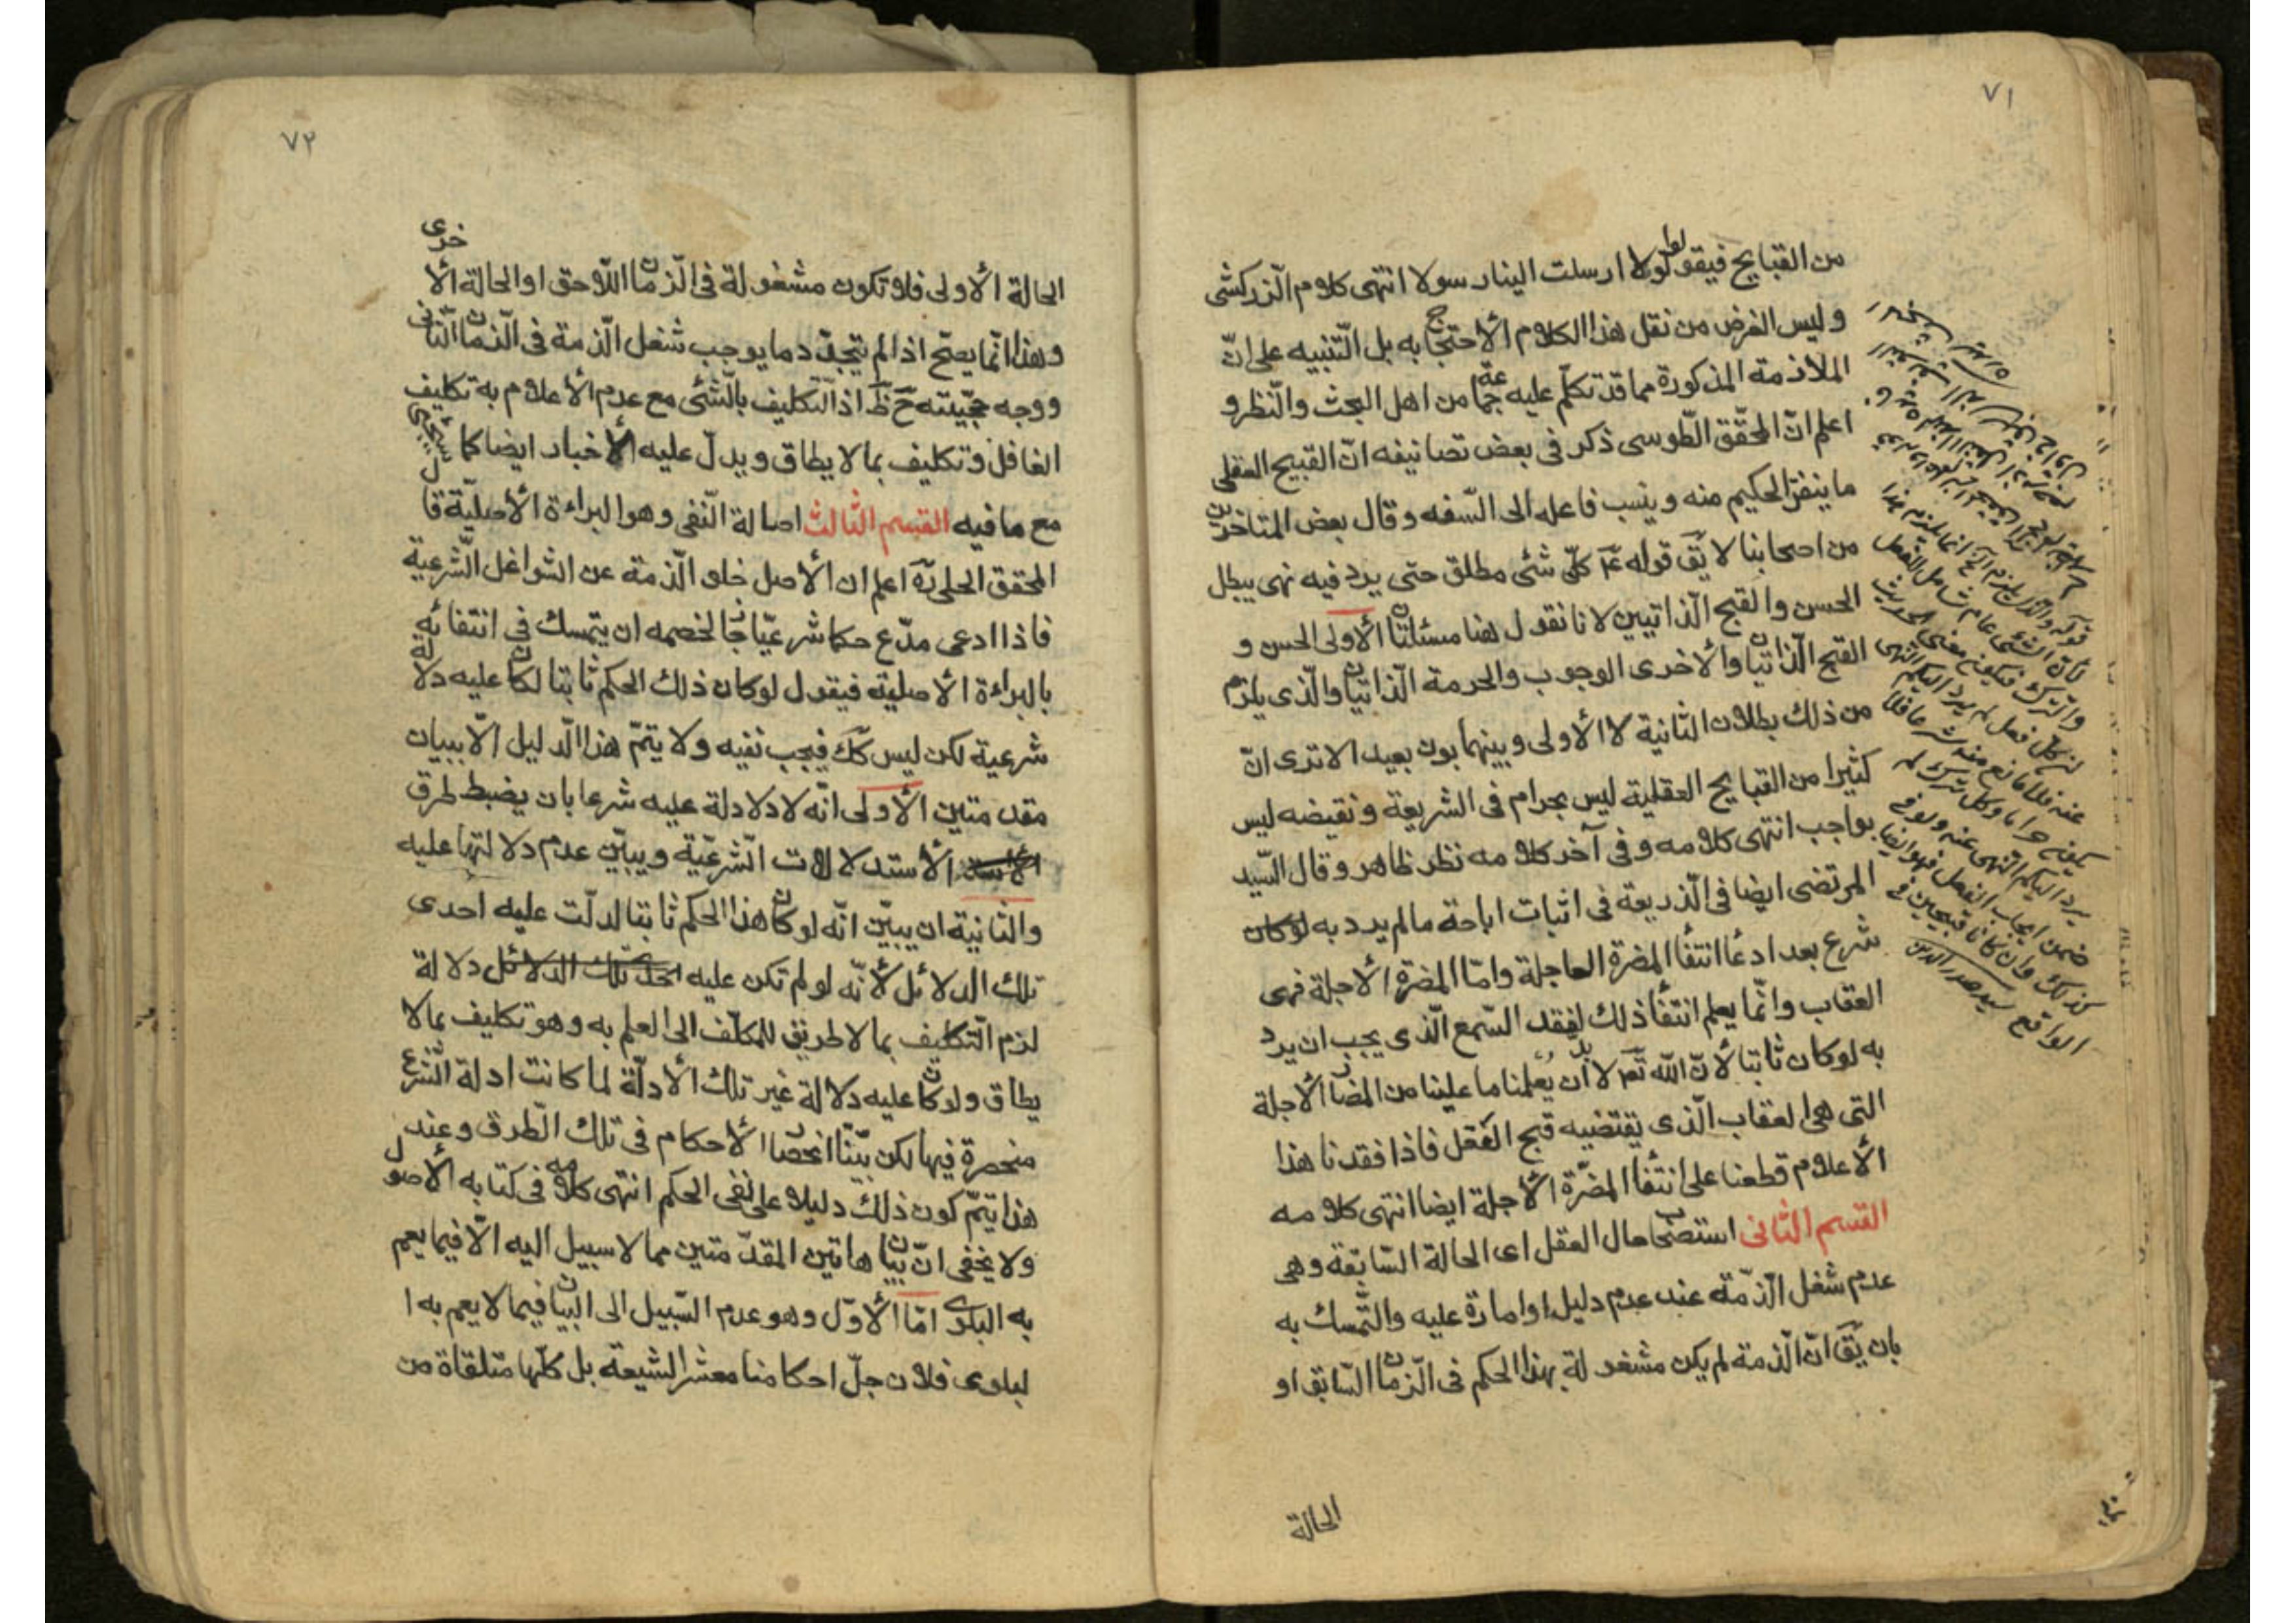 ٧١
من القبايح فيقولوا لولا ارسلت الينا رسولا انتهى كلام الزركشى
وليس الغرض من نقل هذا الكلام الأحتجاج به بل التّنبيه على انّ
الملازمة المذكورة مما قد تكلّم عليه جماعة من اهل البحث والنّظر و
اعلم انّ المحقّق الطّوسى ذكر فى بعض تصانيفه انّ القبيح العقلى
ما ينفر الحكيم منه وينسب فاعله الى السّفه وقال بعض المتاخرين
من اصحابنا لا يقَ قوله عَم كلّ شئ مطلق حتى يرد فيه نهى يبطل
الحسن والقبح الذّاتيين لانا نقول هنا مسئلتان الأولى الحسن و
القبح الذّاتيان والأخرى الوجوب والحرمة الذّاتيان والّذى يلزم
من ذلك بطلان الثانية لا الأولى وبينهما بون بعيد الا ترى انّ
كثيرا من القبايح العقلية ليس بحرام فى الشريعة ونقيضه ليس
بواجب انتهى كلامه وفى آخر كلامه نظر ظاهر وقال السّيد
المرتضى ايضا فى الذّريعة فى اثبات اباحة مالم يرد به لوكان
شرع بعد ادعا انتفأ المضرة العاجلة وامّا المضرّة الأجلة فهى
العقاب وانّما يعلم انتفأ ذلك لفقد السّمع الّذى يجب ان يرد
به لوكان ثابتا لأنّ اللّه تعَ لا بدّ ان يُعلمنا ما علينا من المضار الأجلة
التى هى العقاب الّذى يقتضيه قبح الفعل فاذا فقدنا هذا
الأعلام قطعنا على انتفأ المضرّة الأجلة ايضا انتهى كلامه
القسم الثانى استصحاب حال العقل اى الحالة السّابقة وهى
عدم شغل الذّمّة عند عدم دليل او امارة عليه والتّمسك به
بان يقَ انّ الذّمة لم يكن مشغولة بهذا الحكم فى الزّمان السّابق او
الحالة
قوله والّذى يلزم الخ انما يلزم هذا
لأنّ الشّئ عام شامل للفعل
والترك فيكون معنى الحديث
ان كل فعل لم يرد اليكم النّهى
عنه فلا مانع منه شرعا فلا
يكون حراما وكل ترك لم
يرد اليكم النّهى عنه ولو فى
ضمن ايجاب الفعل فهو ايضا
كذلك وان كانا قبيحين فى
الواقع سيد صدر الدين
٧٢
الحالة الأولى فلا تكون مشغولة فى الزّمان اللّاحق او الحالة الأخرى
وهذا انّما يصّح اذا لم يتجدّد ما يوجب شغل الذّمة فى الزّمان الثّانى
ووجه حجّيته حَ ظَ اذ التّكليف بالشّئ مع عدم الأعلام به تكليف
الغافل وتكليف بما لا يطاق ويدلّ عليه الأخبار ايضا كما سيجئ
مع ما فيه القسم الثالث اصالة النّفى وهو البراءة الأصليّة قال
المحقق الحلى رّه اعلم ان الأصل خلو الذّمة عن الشواغل الشّرعية
فاذا ادعى مدّع حكما شرعيّا جاز لخصمه ان يتمسك فى انتفائه
بالبراءة الأصلية فيقول لوكان ذلك الحكم ثابتا لكان عليه دلالة
شرعية لكن ليس كّك فيجب نفيه ولا يتمّ هذا الدّليل الّا ببيان
مقدمتين الأولى انّه لا دلادلة عليه شرعا بان يضبط طرق
الأستدلالات الشّرعيّة ويبيّن عدم دلالتها عليه
والثانية ان يبيّن انّه لوكان هذا الحكم ثابتا لدلّت عليه احدى
تلك الدلائل لأنّه لو لم تكن عليه احدى تلك الدلائل دلالة
لزم التّكليف بما لا طريق للمكلّف الى العلم به وهو تكليف بما لا
يطاق ولو كان عليه دلالة غير تلك الأدلّة لما كانت ادلة الشّرع
منحصرة فيها لكن بيّنّا انحصار الأحكام فى تلك الطّرق وعند
هذا يتمّ كون ذلك دليلا على نفى الحكم انتهى كلامه فى كتابه الأصول
ولا يخفى انّ بيان هاتين المقدّمتين مما لا سبيل اليه الّا فيما يعم
به البلوى امّا الأوّل وهو عدم السّبيل الى البيان فيما لا يعم به ا
لبلوى فلان جلّ احكامنا معشر الشيعة بل كلّها متلقاة من